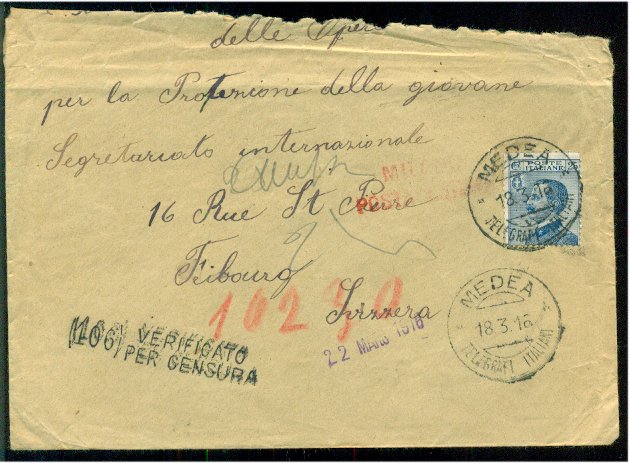 delle
per la Protezione della giovane
Segretariato internazionale
16 Rue St. Pierre
Fribourg
Svizzera
POSTE ITALIANE
MEDEA
18.3.16
TELEGRAFI ITALIANI
MEDEA
18.3.16
TELEGRAFI ITALIANI
10230
22 MARS 1916
(106) VERIFICATO
PER CENSURA